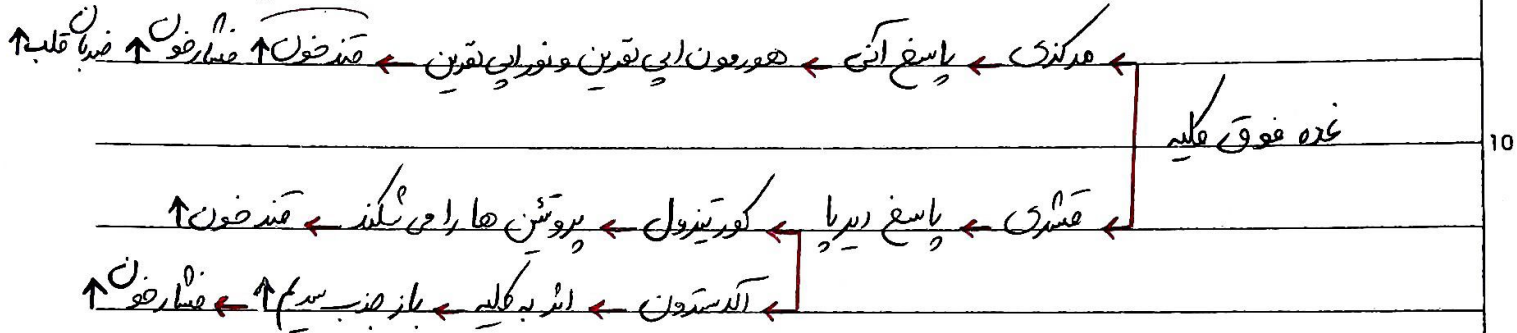 مرکزی ← پاسخ آنی ← هورمون اپی نفرین و نوراپی نفرین ← قند خون↑ فشار خون↑ ضربان قلب↑
غده فوق کلیه
10
قشری ← پاسخ دیرپا ← کورتیزول ← پروتئین ها را می شکند ← قند خون↑
آلدسترون ← اثر به کلیه ← باز جذب سدیم↑ ← فشار خون↑